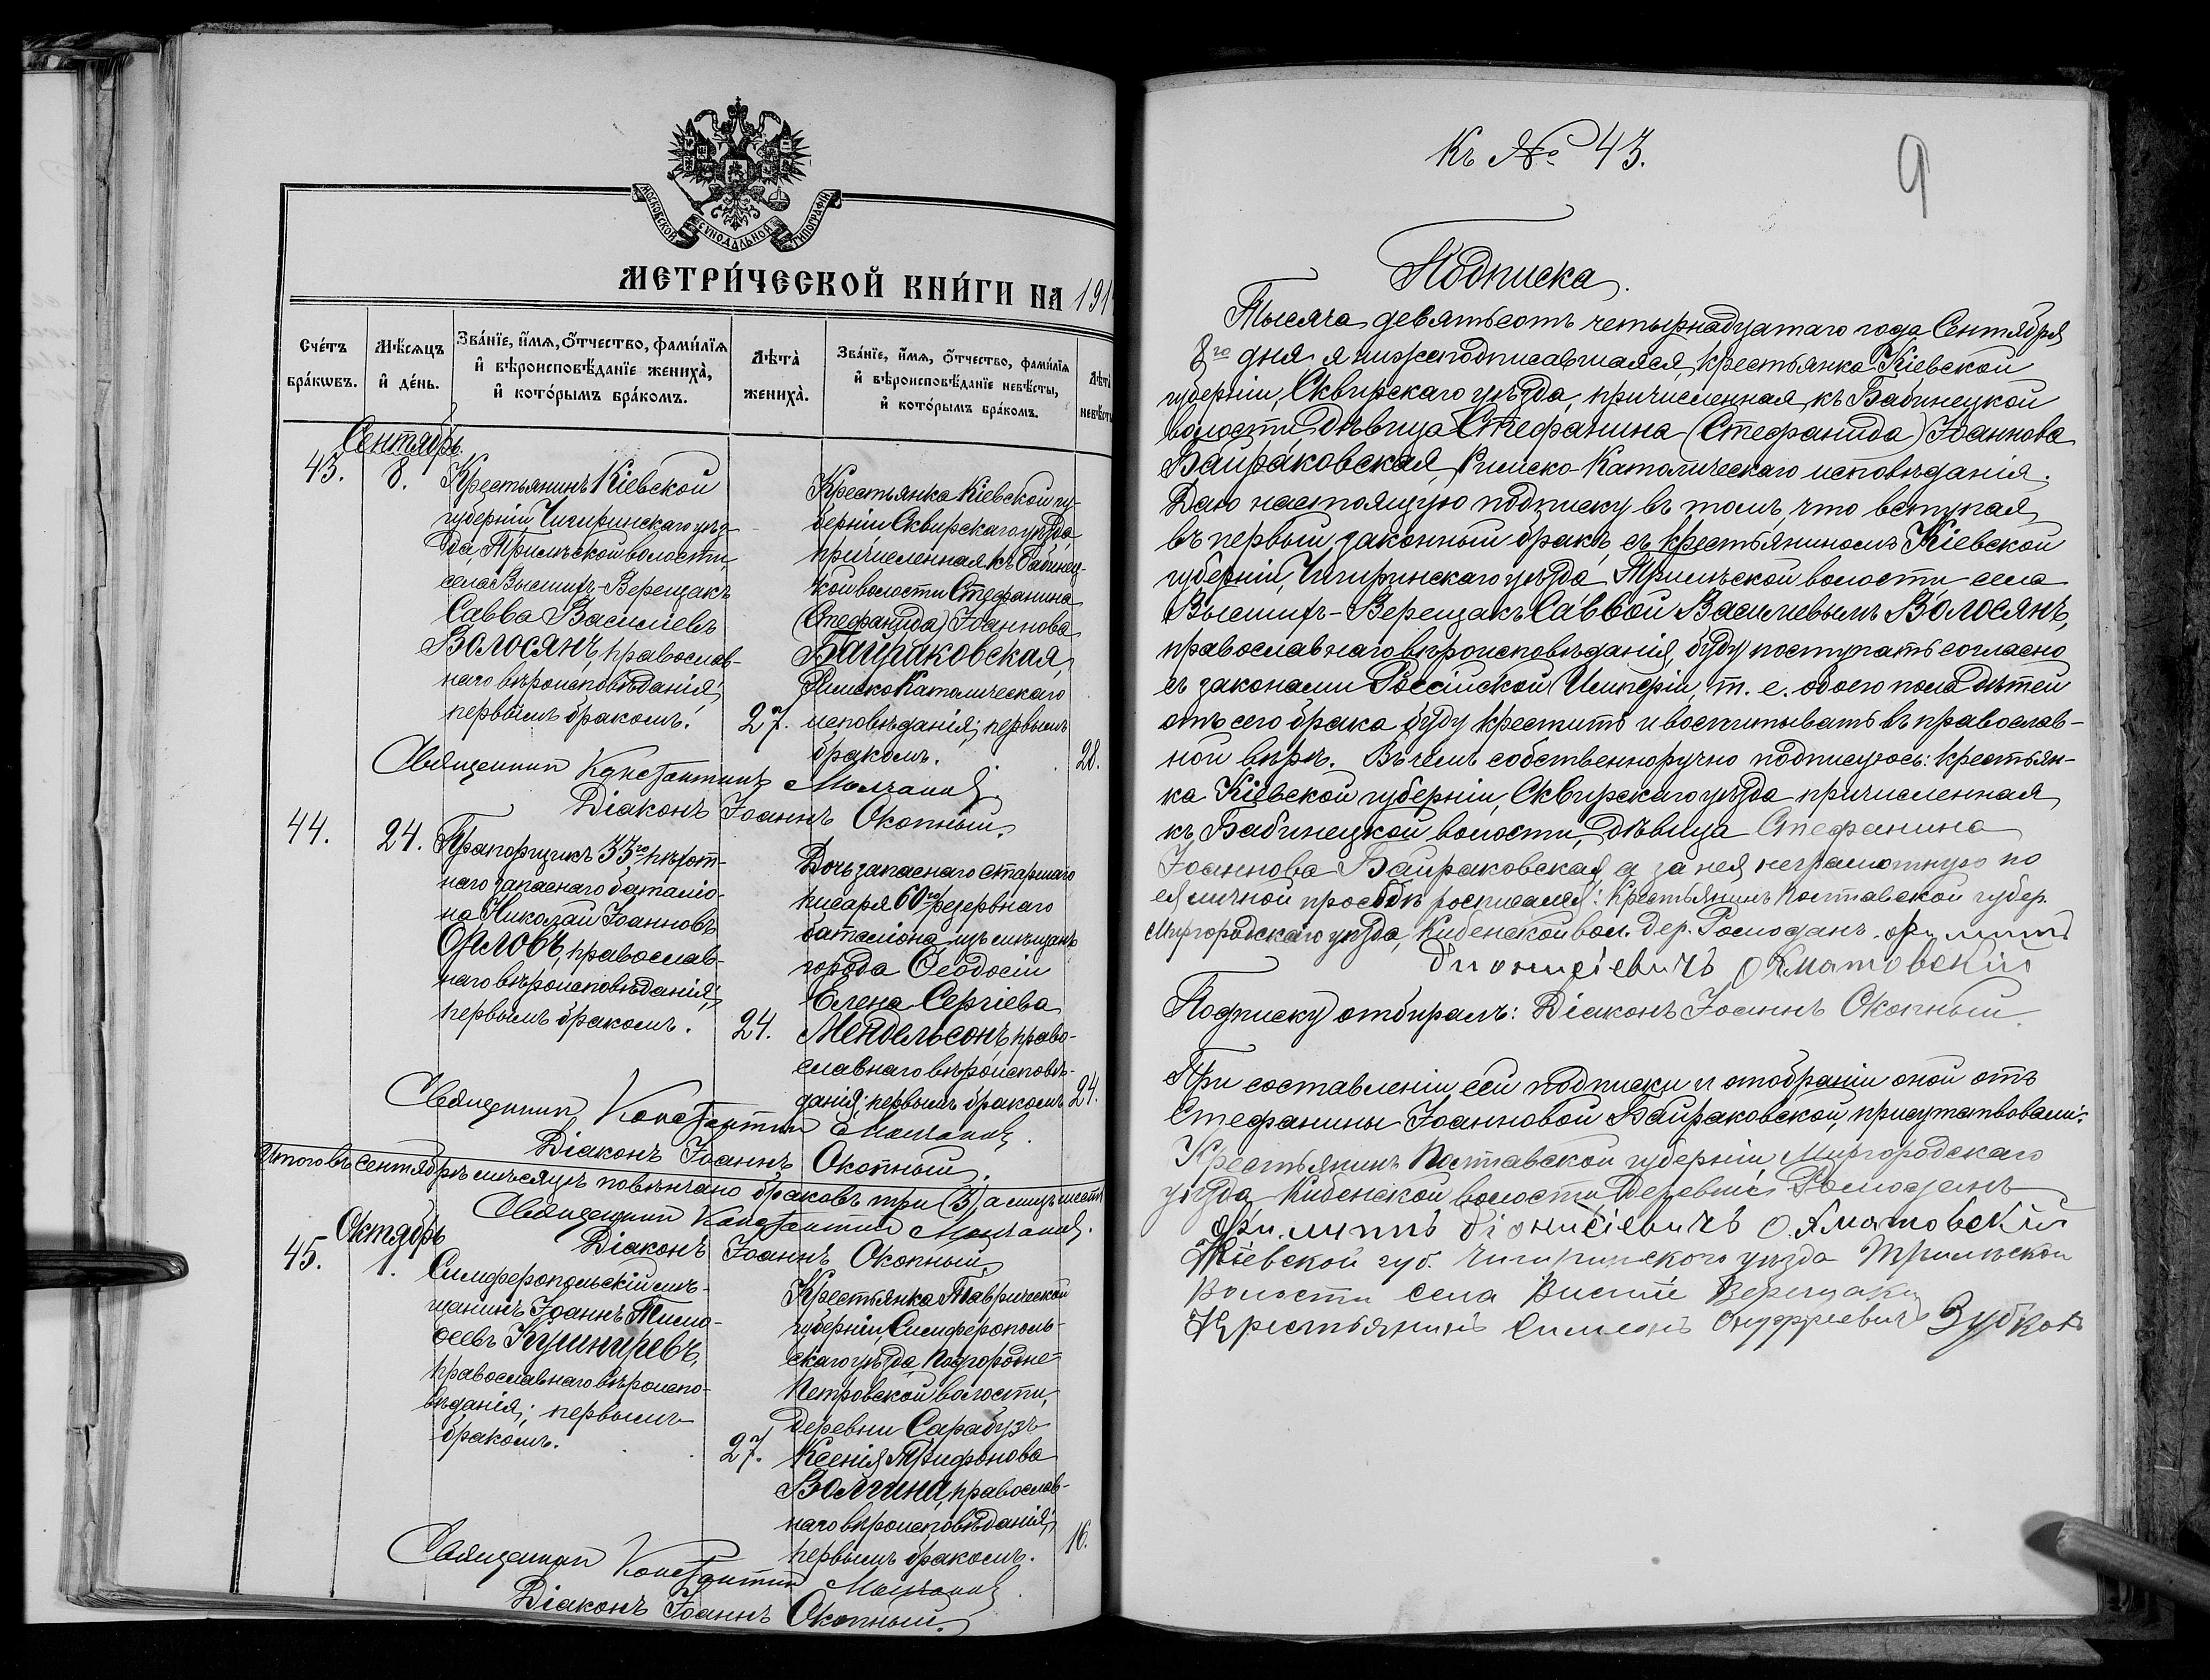 МОСКОВСКОЙ СѴНОДАЛЬНОЙ ТИПОГРАФІИ
МЕТРИ́ЧЕСКОЙ КНИ́ГИ НА 191
Сче́тъ бра́кωвъ.
Мѣ́сѧцъ и҆ де́нь.
Зва́нїе, и҆́мѧ, ѻ҆́тчество, фами́лїѧ
и҆ вѣроисповѣ́данїе жениха̀,
и҆ кото́рымъ бра́комъ.
Лѣта̀ жениха̀.
Зва́нїе, и҆́мѧ, ѻ҆́тчество, фами́лїѧ
и҆ вѣроисповѣ́данїе невѣ́сты,
и҆ кото́рымъ бра́комъ.
Лѣта̀
Сентябрь
43. 8.
Крестьянинъ Кіевской
губерніи Чигиринскаго уѣз-
да, Трилѣсской волости,
села Вышшихъ-Верещакъ
Савва Василіевъ
Волосянъ, православ-
наго вѣроисповѣданія;
первымъ бракомъ.
27.
Крестьянка Кіевской гу-
берніи Сквирскаго уѣзда
причисленная къ Бабинец-
кой волости Стефанина
(Стефанида) Іоаннова
Байраковская,
Римско Католическаго
исповѣданія, первымъ
бракомъ.
28.
Священникъ Константинъ Молчановъ.
Діаконъ Іоаннъ Окопный.
44. 24.
Прапорщикъ 33го пѣхот-
наго запаснаго баталіо-
на Николай Іоанновъ
Орловъ, православ-
наго вѣроисповѣданія;
первымъ бракомъ.
24.
Дочь запаснаго старшаго
писаря 60го резервнаго
баталіона, изъ мѣщанъ
города Ѳеодосіи
Елена Сергіева
Мендельсонъ, право-
славнаго вѣроисповѣ-
данія; первымъ бракомъ
24.
Священникъ Константинъ Молчановъ.
Діаконъ Іоаннъ Окопный.
Итого въ сентябрѣ мѣсяцѣ повѣнчано браковъ три (3), а лицъ шесть
Священникъ Константинъ Молчановъ.
Діаконъ Іоаннъ Окопный.
Октябрь
45. 1.
Симферопольскій мѣ-
щанинъ Іоаннъ Тимо-
ѳеевъ Кушниревъ,
православнаго вѣроиспо-
вѣданія; первымъ
бракомъ.
27.
Крестьянка Таврической
губерніи, Симферополь-
скаго уѣзда, Подгородне-
Петровской волости,
деревни Сарабузъ
Ксенія Трифонова
Волгина, православ-
наго вѣроисповѣданія;
первымъ бракомъ.
16.
Священникъ Константинъ Молчановъ.
Діаконъ Іоаннъ Окопный.
Къ № 43.
9
Подписка.
Тысяча девятьсотъ четырнадцатаго года Сентября
8го дня я нижеподписавшаяся, крестьянка Кіевской
губерніи, Сквирскаго уѣзда, причисленная къ Бабинецкой
волости, дѣвица Стефанина (Стефанида) Іоаннова
Байраковская, Римско-Католическаго исповѣданія.
Даю настоящую подписку въ томъ, что вступая
въ первый законный бракъ съ крестьяниномъ Кіевской
губерніи, Чигиринскаго уѣзда, Трилѣсской волости села
Вышшихъ-Верещакъ Саввой Василіевымъ Волосянъ,
православнаго вѣроисповѣданія, буду поступать согласно
съ законами Россійской Имперіи, т. е. обоего пола дѣтей
отъ сего брака буду крестить и воспитывать въ православ-
ной вѣрѣ. Въ чемъ собственноручно подписуюсь: крестьян-
ка Кіевской губерніи, Сквирскаго уѣзда причисленная
къ Бабинецкой волости, дѣвица Стефанина
Іоаннова Байраковская, а за нея неграмотную по
ея личной просьбѣ росписался: Крестьянинъ Полтавской губер.
Миргородскаго уѣзда, Кибенской вол. дер. Ромоданъ. Филипъ
Дионисіевичъ
Подписку отбиралъ: Діаконъ Іоаннъ Окопный.
При составленіи сей подписки и отобраніи оной отъ
Стефанины Іоанновой Байраковской, присутствовали:
Крестьянинъ Полтавской губерніи, Миргородскаго
уѣзда Кибенской волости деревни Ромоданъ
Филипъ Діонисіевичъ
Кіевской губ. Чигиринского уѣзда Трилѣской
Волости Села Висшіе Верещаки
Крестьянинъ Симеонъ Онуфріевичъ Зубко